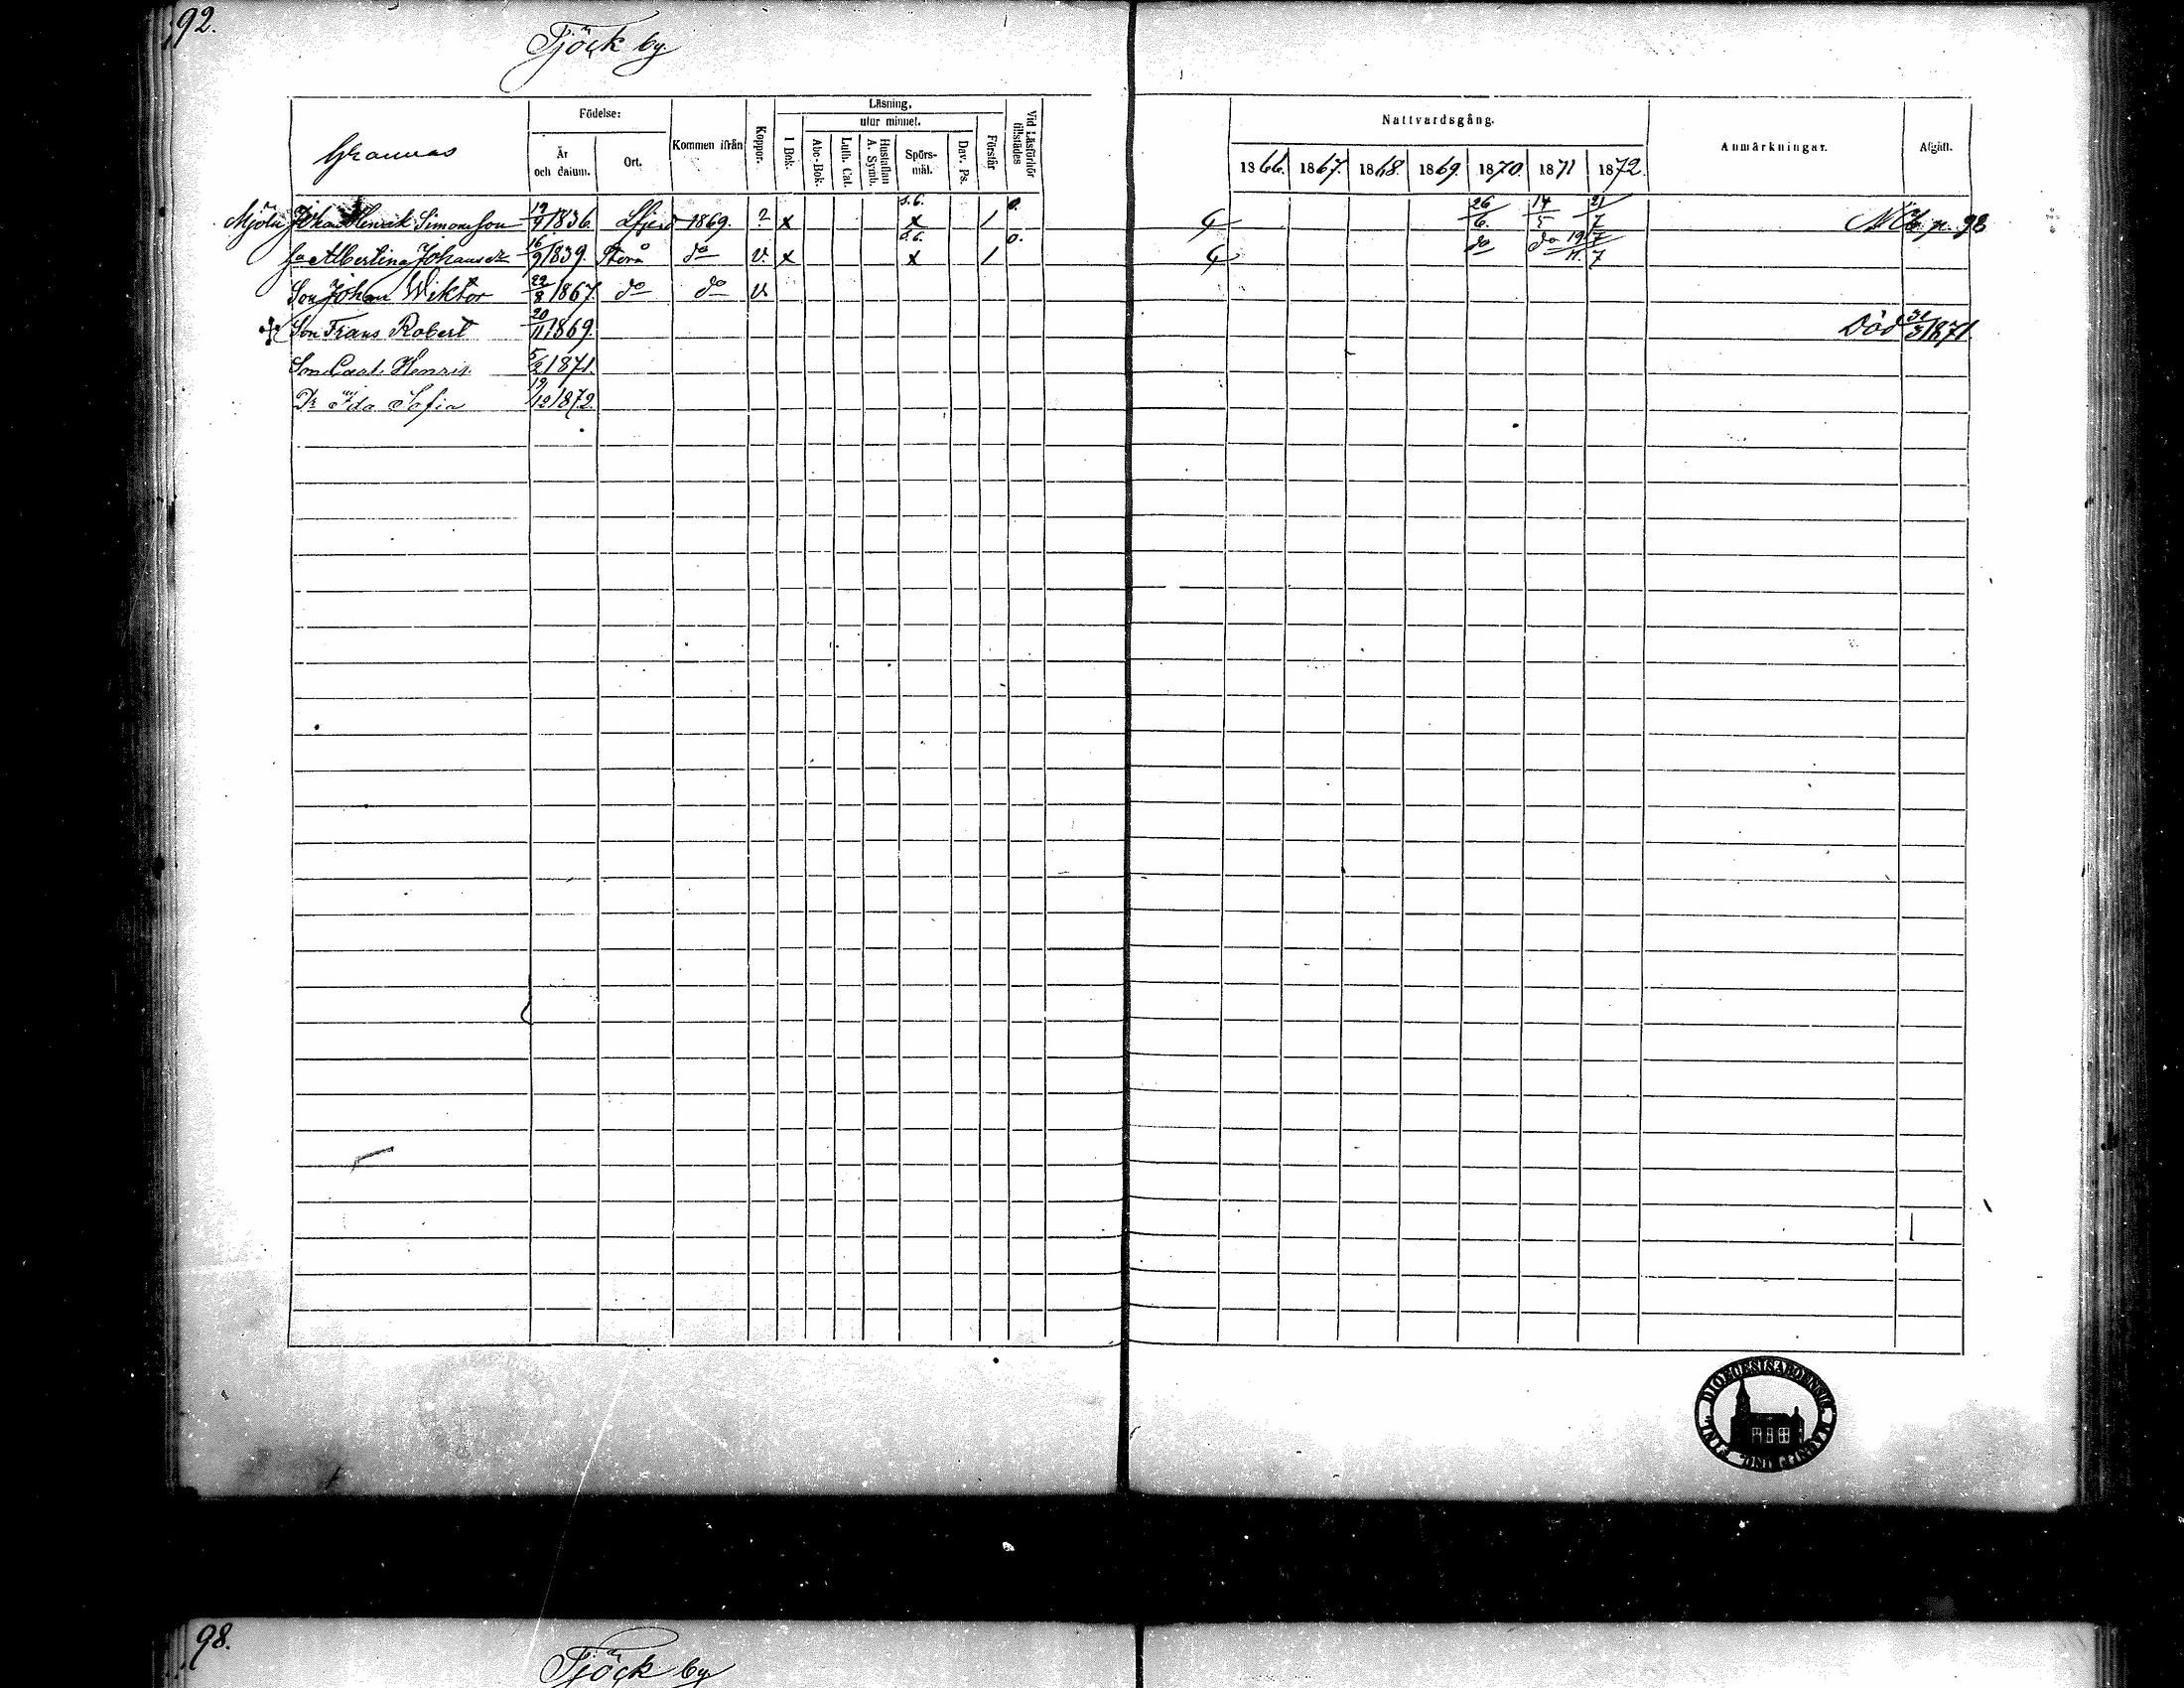 92.
Tjöck by
Grannas
Födelse:
År och datum.
Ort.
Kommen ifrån
Koppor.
Läsning,
I Bok.
utur minnet.
Abc-Bok.
Luth. Cat.
Hustaflan A. Symb.
Spörsmål.
Dav. Ps.
Förstår
Vid Läsförhör tillstädes
Nattvardsgång.
1866. 1867. 1868. 1869. 1870. 1871 1872.
Anmärkningar.
Afgått.
Johan Henrik Simonsson 1836. Lfjerd 1869. ? x s.6. x / 0. 4 26/6. 14/5 21/7 p. 98
Albertina Johansdr 16/9 1839. Storå do v. x s.6. x / 0. 4 do do 19/11. 7/7
Son Johan Wiktor 22/8 1867. do do v.
Son Frans Robert 20/11 1869. Död 31/3 1871.
Son Carl Henrik 5/2 1871.
Dr Ida Sofia 19/12 1872.
DIOECESIS ABOENSIS
98.
Tjöck by